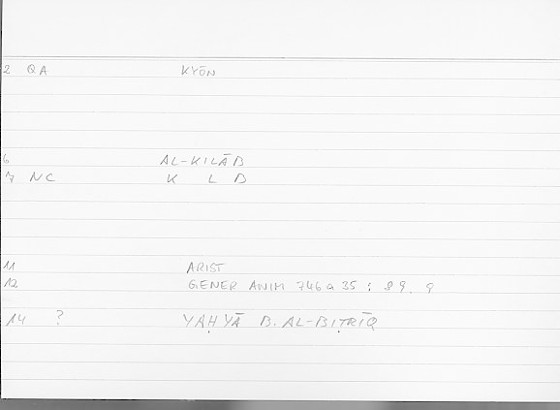 2 QA KYŌN
6 AL-KILĀB
7 NC K L B
11 ARIST
12 GENER ANIM 746a35 : 89, 9
14 ? YAḤYĀ B. AL-BIṬRĪQ